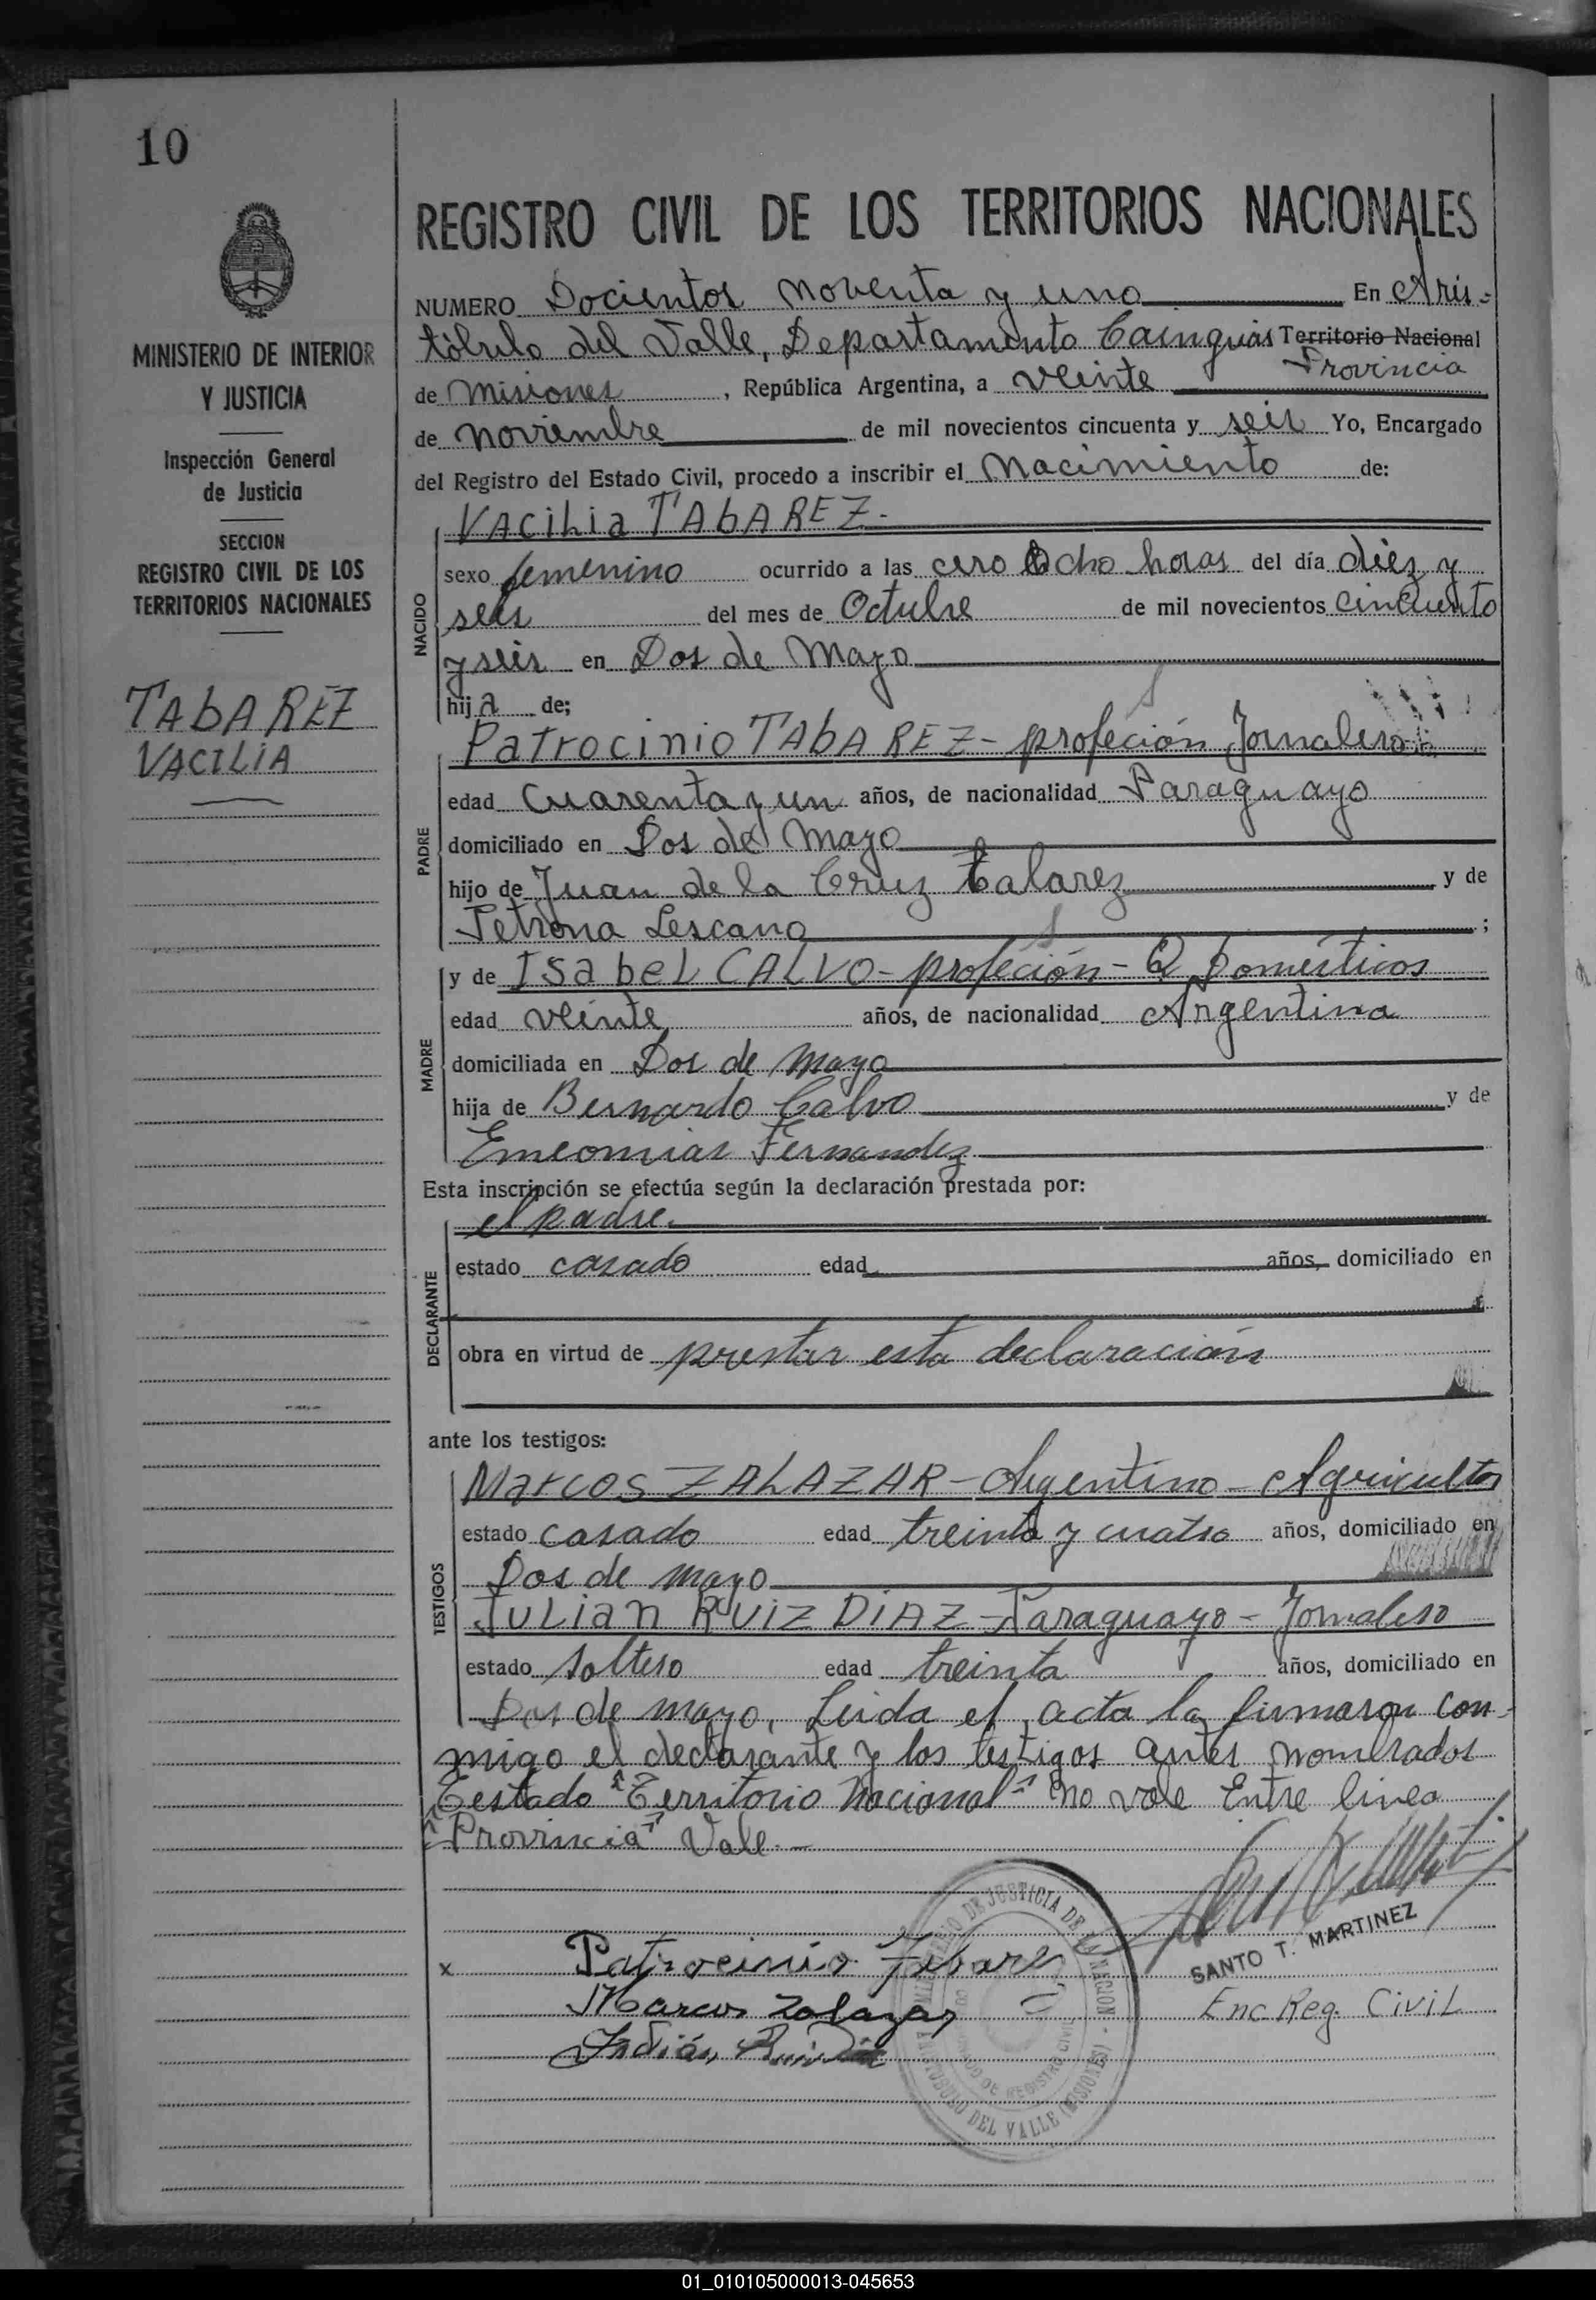 10
MINISTERIO DE INTERIOR
Y JUSTICIA
Inspección General
de Justicia
SECCION
REGISTRO CIVIL DE LOS
TERRITORIOS NACIONALES
TAbAREZ
VACILIA
REGISTRO CIVIL DE LOS TERRITORIOS NACIONALES
NUMERO Docientos noventa y uno En Aris=
tóbulo del Valle, Departamento Cainguás Territorio Nacional
Provincia
de Misiones, República Argentina, a veinte
de noviembre de mil novecientos cincuenta y seis Yo, Encargado
del Registro del Estado Civil, procedo a inscribir el Nacimiento de:
NACIDO
VACiLia TAbAREZ.-
sexo femenino ocurrido a las cero ocho horas del día diez y
seis del mes de Octubre de mil novecientos cincuenta
y seis en Dos de Mayo
hija de;
PADRE
Patrocinio TAbAREZ- profeción Jornalero
s
edad cuarenta y un años, de nacionalidad Paraguayo
domiciliado en Dos de Mayo
hijo de Juan de la Cruz Tabarez y de
Petrona Lescano;
MADRE
s
y de IsabeL CALVO- profeción- Q. Domésticos
edad veinte años, de nacionalidad Argentina
domiciliada en Dos de mayo
hija de Bernardo Calvo y de
Fernandez
Esta inscripción se efectúa según la declaración prestada por:
DECLARANTE
el padre.
estado casado edad años, domiciliado en
obra en virtud de prestar esta declaración
ante los testigos:
TESTIGOS
Marcos ZALAZAR- Argentino- Agricultor
estado casado edad treinta y cuatro años, domiciliado en
Dos de mayo
JULian RUIZ DIAZ- Paraguayo- Jornalero
estado soltero edad treinta años, domiciliado en
Dos de mayo, Leida el acta la firmaron con-
migo el declarante y los testigos antes nombrados
Testado "Territorio Nacional" no vale Entre linea
"Provincia" Vale.-
SANTO T. MARTINEZ
Enc Reg. CiviL
x Patrocinio Tabarez
Marcos Zalazar
Julián Ruiz Diaz
MINISTERIO DE JUSTICIA DE LA NACION
ARISTOBULO DEL VALLE (MISIONES)
DE REGISTRO CIVIL
01_010105000013-045653